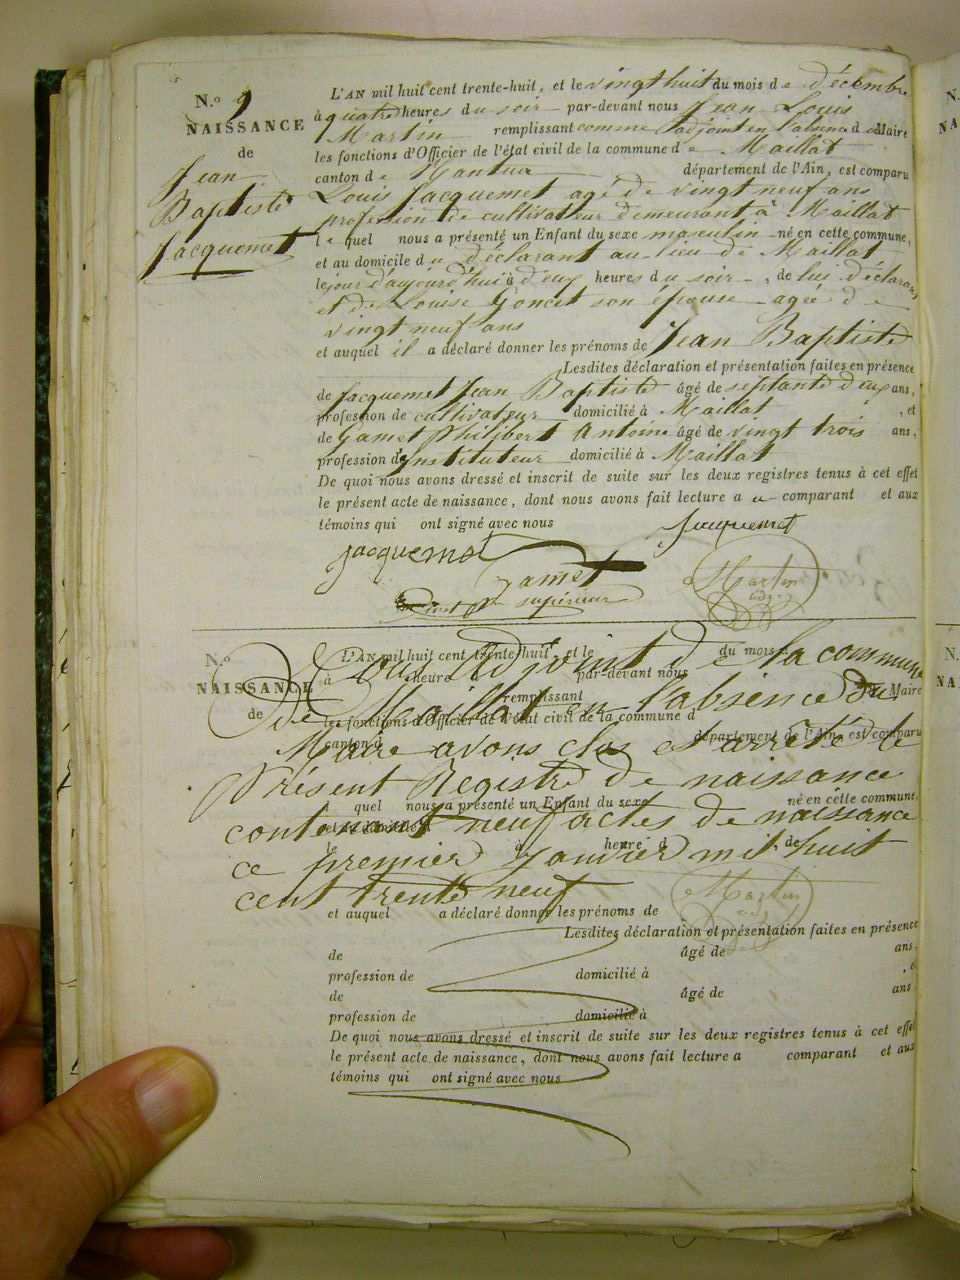 N.o 9
NAISSANCE
de
Jean
Baptiste
Jacquemet
L'AN mil huit cent trente-huit, et le vingt huit du mois de décembre
à quatre heures du soir par-devant nous Jean Louis
Martin remplissant comme adjoint en l'absence du Maire
les fonctions d'Officier de l'état civil de la commune de Maillat
canton de Nantua département de l'Ain, est comparu
Louis Jacquemet agé de vingt neuf ans
profession de cultivateur demeurant à Maillat
lequel nous a présenté un Enfant du sexe masculin né en cette commune,
et au domicile du déclarant au lieu de Maillat
le jour d'aujourd'hui à deux heures du soir, de lui déclarant
et de Louise Goncet son épouse agée de
vingt neuf ans
et auquel il a déclaré donner les prénoms de Jean Baptiste
Lesdites déclaration et présentation faites en présence
de Jacquemet Jean Baptiste âgé de septante deux ans,
profession de cultivateur domicilié à Maillat, et
de Gamet Philibert Antoine âgé de vingt trois ans,
profession d'Instituteur domicilié à Maillat
De quoi nous avons dressé et inscrit de suite sur les deux registres tenus à cet effet
le présent acte de naissance, dont nous avons fait lecture au comparant et aux
témoins qui ont signé avec nous
Jacquemet
Jacquemet
Gamet
Martin
adj.
supérieur
N.o
NAISSANCE
de
L'AN mil huit cent trente-huit, et le du mois
à heure par-devant nous
remplissant Maire
les fonctions d'Officier de l'état civil de la commune d
canton d département de l'Ain, est comparu
Nous adjoint de la commune
de Maillat en l'absence du
Maire avons clos et arrêté le
Présent Registre de naissance
quel nous a présenté un Enfant du sexe né en cette commune,
contenant neuf actes de naissance
à heure d de
ce premier Janvier mil huit
cent trente neuf
Martin
adj.
et auquel a déclaré donner les prénoms de
Lesdites déclaration et présentation faites en présence
de âgé de ans,
profession de domicilié à , e
de âgé de ans
profession de domicilié à
De quoi nous avons dressé et inscrit de suite sur les deux registres tenus à cet effet
le présent acte de naissance, dont nous avons fait lecture a comparant et aux
témoins qui ont signé avec nous